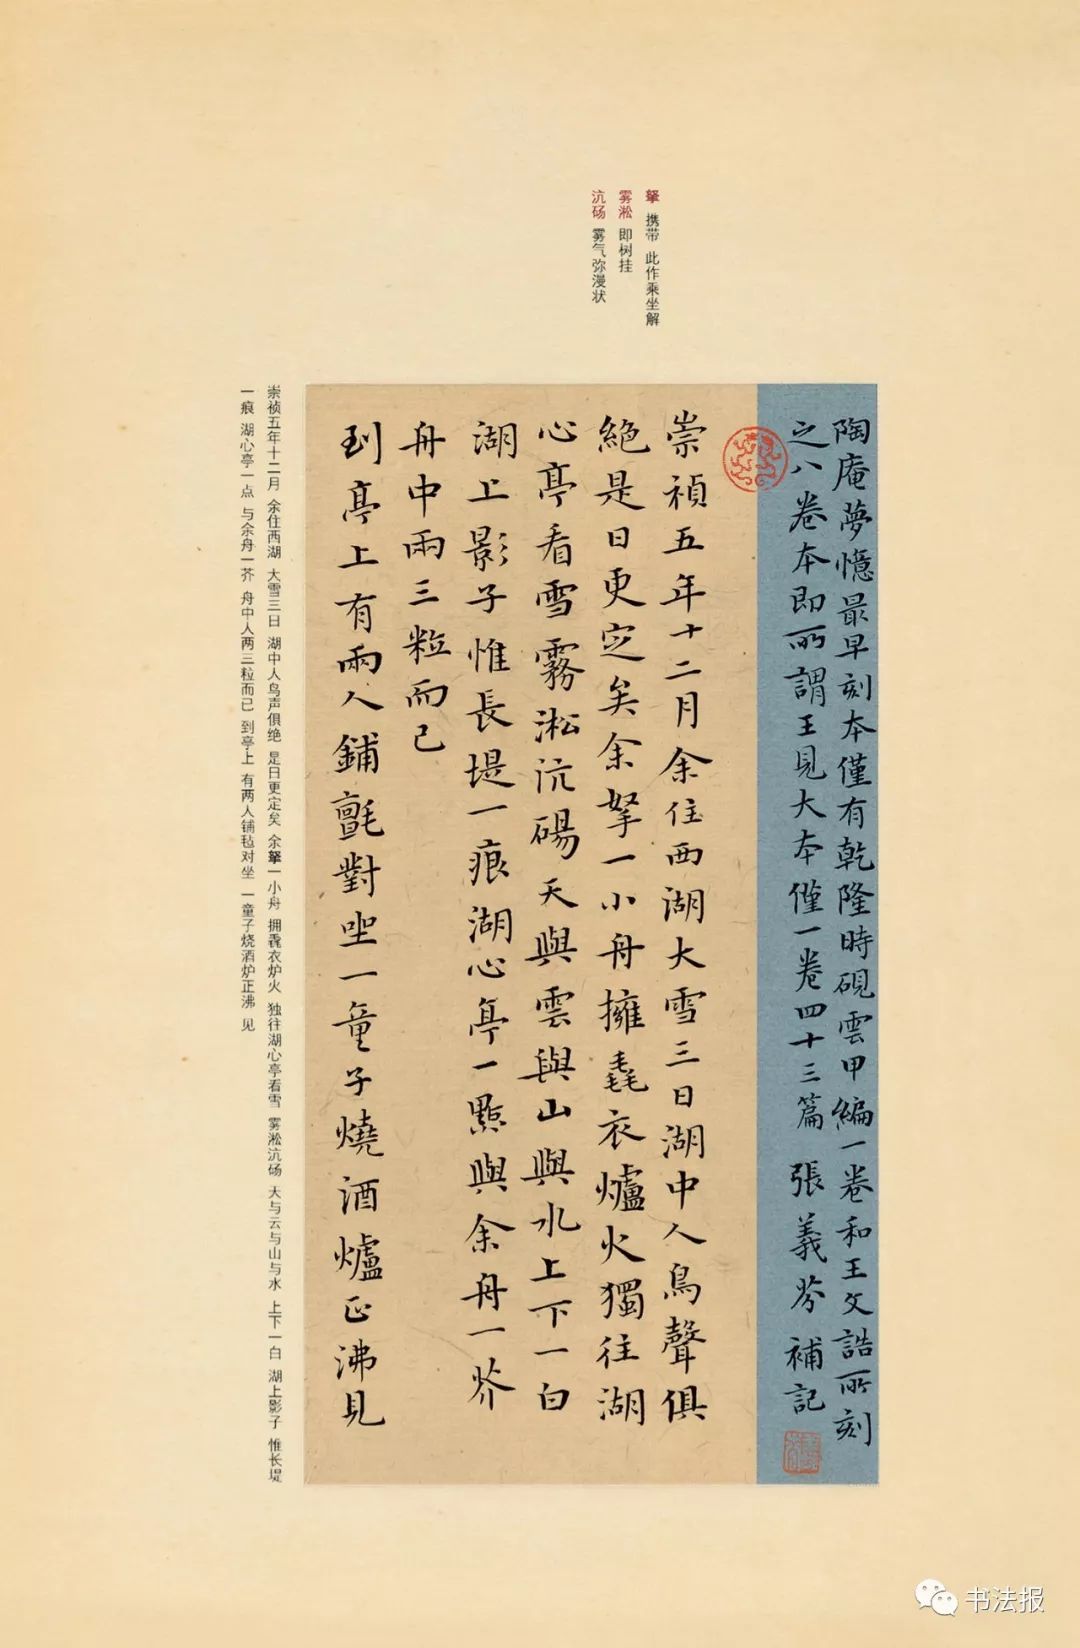 拏 携带 此作乘坐解
雾淞 即树挂
沆砀 雾气弥漫状
陶庵夢憶最早刻本僅有乾隆時硯雲甲編一卷和王文誥所刻
之八卷本即所謂王見大本僅一卷四十三篇 張義芬補記
崇禎五年十二月余住西湖大雪三日湖中人鳥聲俱
絕是日更定矣余拏一小舟擁毳衣爐火獨往湖
心亭看雪霧淞沆碭天與雲與山與水上下一白
湖上影子惟長堤一痕湖心亭一點與余舟一芥
舟中兩三粒而已
到亭上有兩人鋪氈對坐一童子燒酒爐正沸見
崇祯五年十二月 余住西湖 大雪三日 湖中人鸟声俱绝 是日更定矣 余拏一小舟 拥毳衣炉火 独往湖心亭看雪 雾淞沆砀 天与云与山与水 上下一白 湖上影子 惟长堤
一痕 湖心亭一点 与余舟一芥 舟中人两三粒而已 到亭上 有两人铺毡对坐 一童子烧酒炉正沸 见
书法报